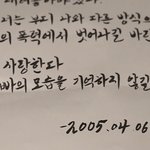 서는 부디 나와 다른 방식으
의 폭력에서 벗어나길 바란
사랑한다
빠의 모습을 기억하지 않길
-2005.04 06